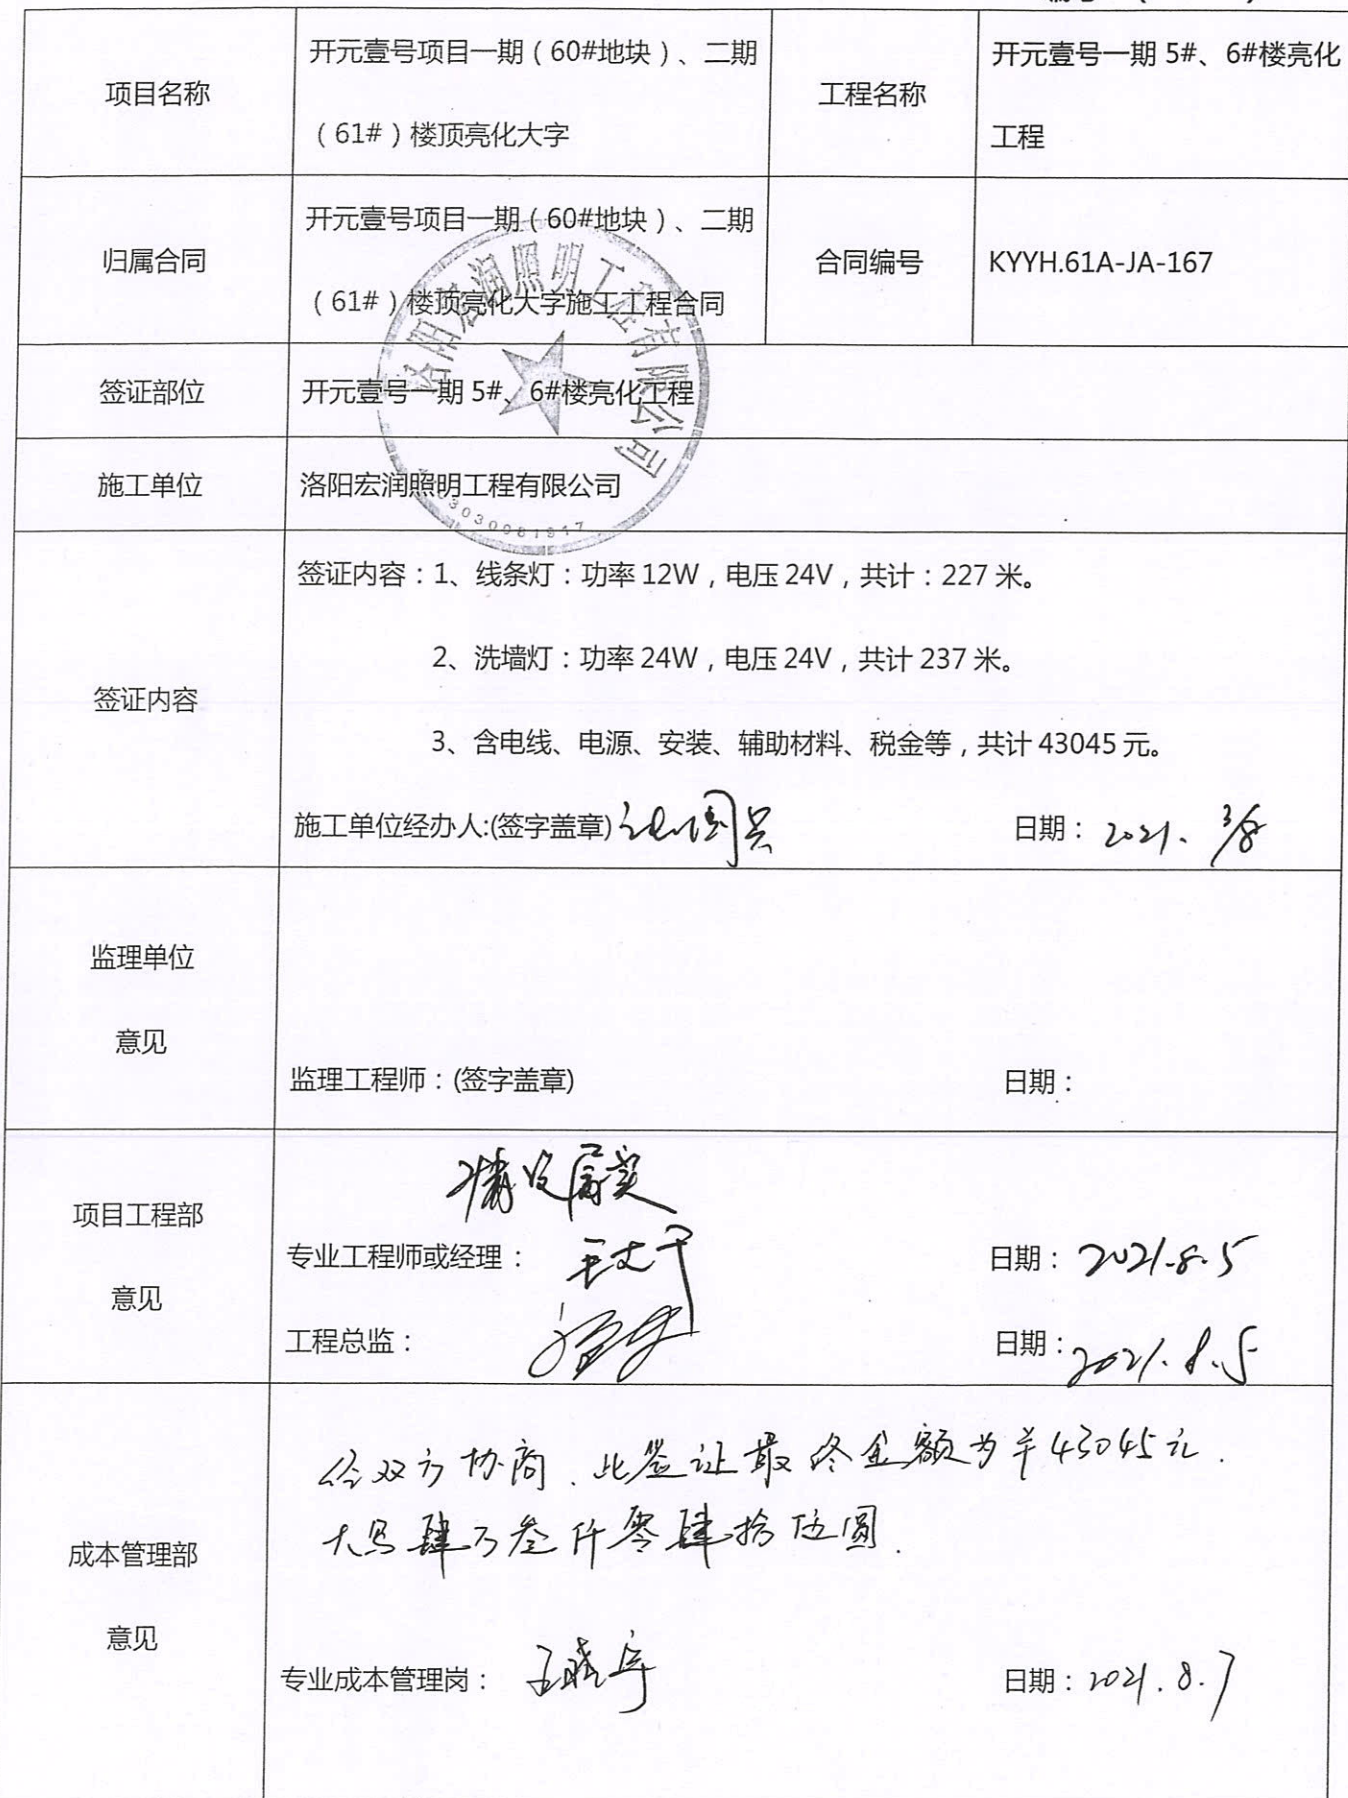 项目名称
开元壹号项目一期（60#地块）、二期
（61#）楼顶亮化大字
工程名称
开元壹号一期 5#、6#楼亮化
工程
归属合同
开元壹号项目一期（60#地块）、二期
（61#）楼顶亮化大字施工工程合同
合同编号
KYYH.61A-JA-167
洛阳宏润照明工程有限公司
签证部位
开元壹号一期 5#、6#楼亮化工程
施工单位
洛阳宏润照明工程有限公司
签证内容
签证内容：1、线条灯：功率 12W，电压 24V，共计：227 米。
2、洗墙灯：功率 24W，电压 24V，共计 237 米。
3、含电线、电源、安装、辅助材料、税金等，共计 43045 元。
施工单位经办人:(签字盖章)
日期： 2021. 3/8
监理单位
意见
监理工程师：(签字盖章)
日期：
项目工程部
意见
情况属实
专业工程师或经理：
日期： 2021.8.5
工程总监：
日期：2021.8.5
成本管理部
意见
经双方协商、此签证最终金额为￥43045元.
大写肆万叁仟零肆拾伍圆.
专业成本管理岗：
日期：2021.8.7